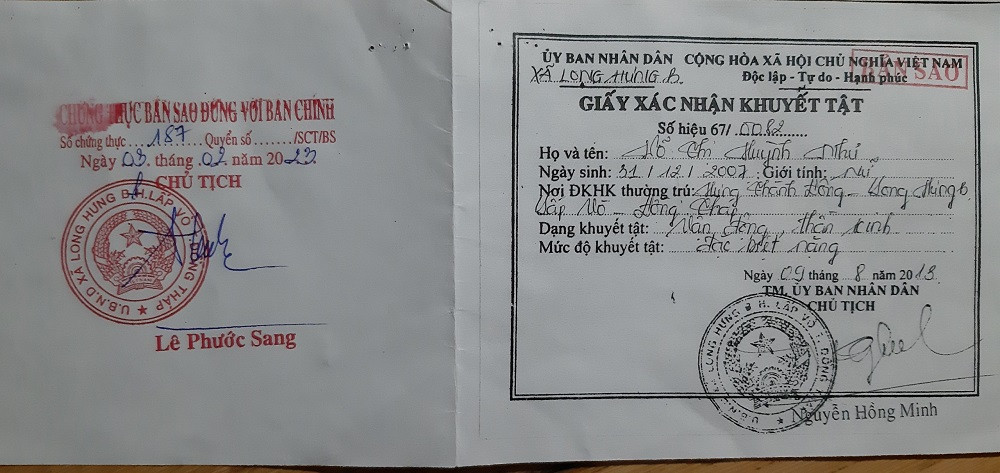 CHỨNG THỰC BẢN SAO ĐÚNG VỚI BẢN CHÍNH
Số chứng thực ...187... Quyển số ......./SCT/BS
Ngày 03. tháng .02. năm 2023.
CHỦ TỊCH
U.B.N.D XÃ LONG HƯNG B H.LẤP VÒ ĐỒNG THÁP
Lê Phước Sang
ỦY BAN NHÂN DÂN
XÃ LONG HƯNG B
CỘNG HÒA XÃ HỘI CHỦ NGHĨA VIỆT NAM
Độc lập - Tự do - Hạnh phúc
BẢN SAO
GIẤY XÁC NHẬN KHUYẾT TẬT
Số hiệu 67/.0082......
Họ và tên: Hồ Thị Huỳnh Như
Ngày sinh: 31 / 12 / 2007 Giới tính: Nữ
Nơi ĐKHK thường trú: Hưng Thành Đông - Long Hưng B
Lấp Vò - Đồng Tháp
Dạng khuyết tật: Vận động, thần kinh
Mức độ khuyết tật: Đặc biệt nặng
Ngày 09 tháng 8 năm 2013
TM. ỦY BAN NHÂN DÂN
CHỦ TỊCH
U.B.N.D XÃ LONG HƯNG B H. LẤP VÒ T. ĐỒNG THÁP
Nguyễn Hồng Minh